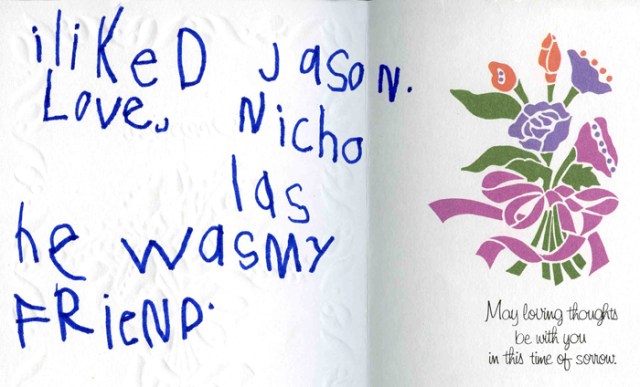 iliKeD Jason.
Love, Nicho
las
he wasMY
FRieND.
May loving thoughts
be with you
in this time of sorrow.